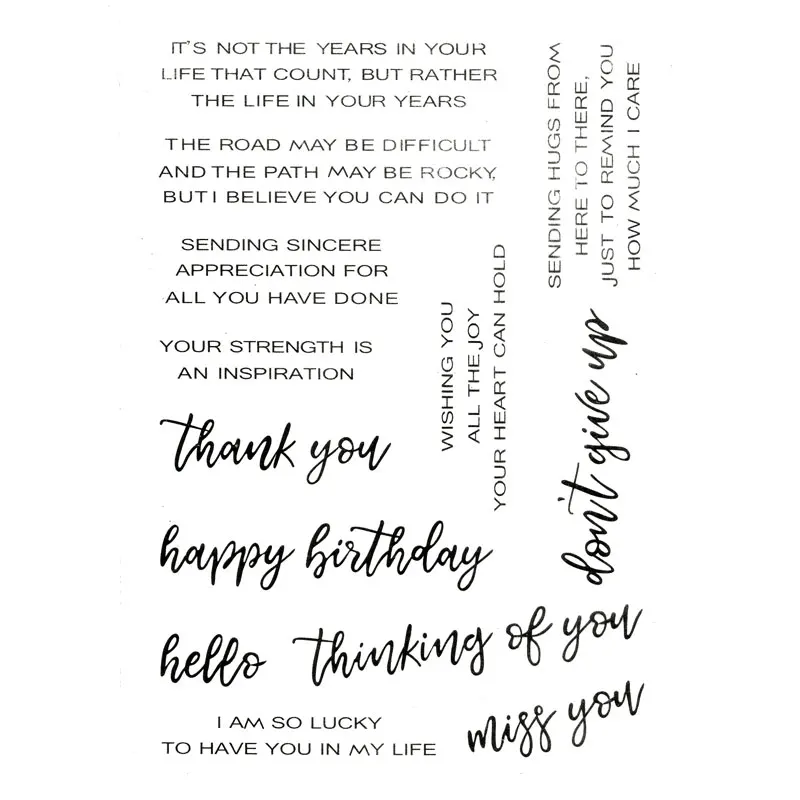 IT'S NOT THE YEARS IN YOUR
LIFE THAT COUNT, BUT RATHER
THE LIFE IN YOUR YEARS
THE ROAD MAY BE DIFFICULT
AND THE PATH MAY BE ROCKY,
BUT I BELIEVE YOU CAN DO IT
SENDING SINCERE
APPRECIATION FOR
ALL YOU HAVE DONE
YOUR STRENGTH IS
AN INSPIRATION
SENDING HUGS FROM
HERE TO THERE,
JUST TO REMIND YOU
HOW MUCH I CARE
WISHING YOU
ALL THE JOY
YOUR HEART CAN HOLD
don't give up
thank you
happy birthday
hello
thinking of you
miss you
I AM SO LUCKY
TO HAVE YOU IN MY LIFE